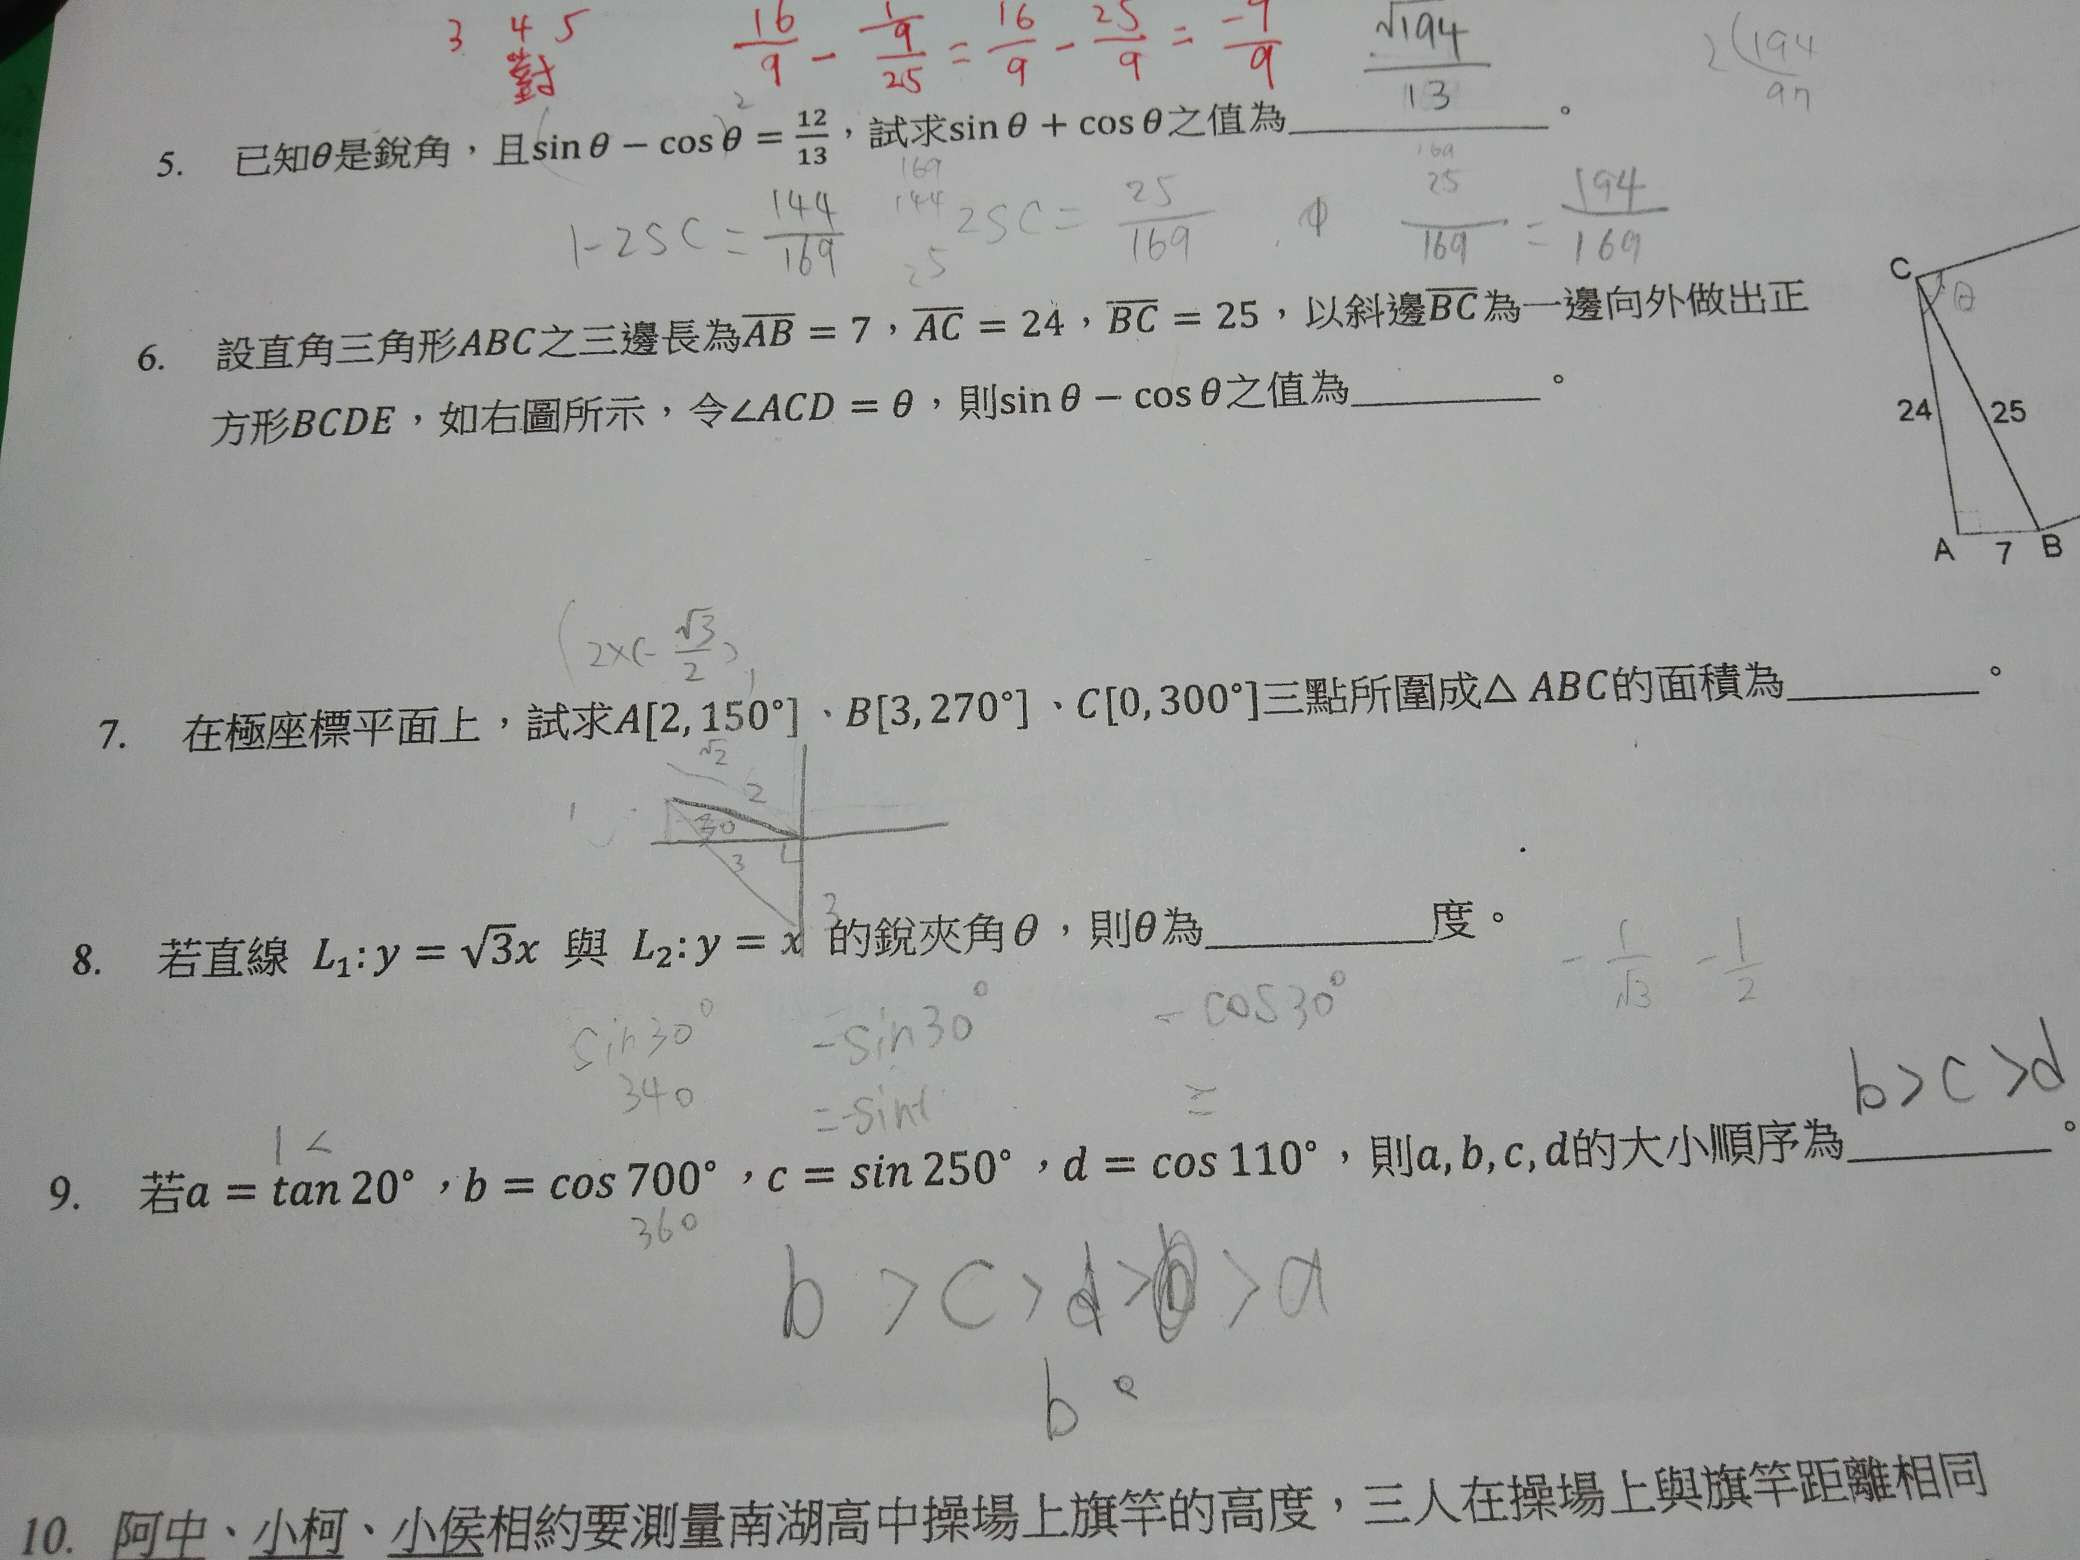 3 4 5
對
16/9 - 1/(9/25) = 16/9 - 25/9 = -9/9
√194/13
2(194
97
5. 已知θ是銳角，且sin θ − cos θ = 12/13，試求sin θ + cos θ之值為__________。
2
1-2SC = 144/169
169
144
25
2SC = 25/169
169
25
/169 = 194/169
6. 設直角三角形ABC之三邊長為AB = 7，AC = 24，BC = 25，以斜邊BC為一邊向外做出正
方形BCDE，如右圖所示，令∠ACD = θ，則sin θ − cos θ之值為__________。
C
θ
24
25
A 7 B
(2×(-√3/2), 1
7. 在極座標平面上，試求A[2, 150°]、B[3, 270°]、C[0, 300°]三點所圍成△ ABC的面積為__________。
√2
2
1
30
3
3
8. 若直線 L₁: y = √3x 與 L₂: y = x 的銳夾角θ，則θ為__________度。
-1/√3 -1/2
sin30° -sin30° -cos30°
340 =-sin
=
b>c>d
1<
9. 若a = tan 20°，b = cos 700°，c = sin 250°，d = cos 110°，則a, b, c, d的大小順序為__________。
360
b > c > d > > a
b
10. 阿中、小柯、小侯相約要測量南湖高中操場上旗竿的高度，三人在操場上與旗竿距離相同